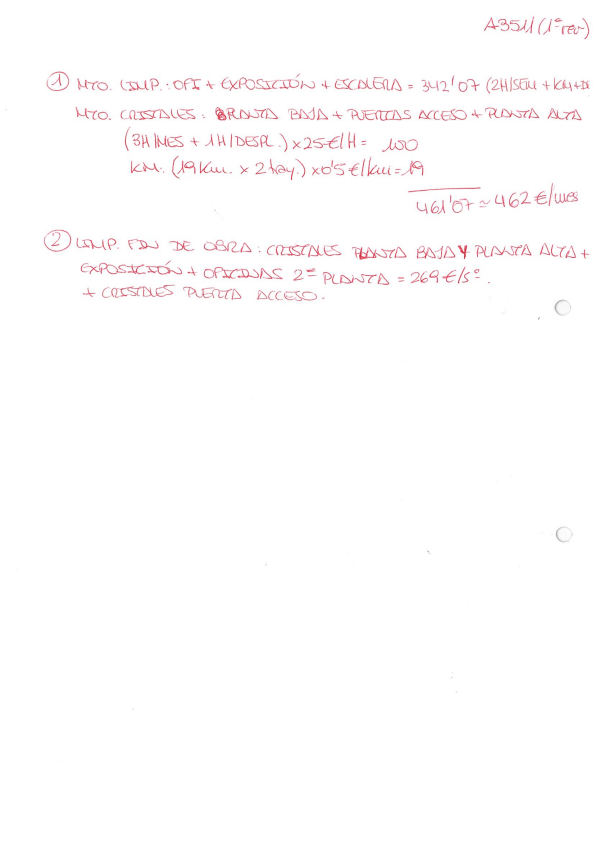 A3511 (1ª rev)
① MTO. LIMP.: OFI + EXPOSICIÓN + ESCALERA = 342'07 (2H/SEM + KM + DI
MTO. CRISTALES: PLANTA BAJA + PUERTAS ACCESO + PLANTA ALTA
(3H/MES + 1H/DESPL.) x 25€/H = 100
KM. (19 Km. x 2 tray.) x 0'5 €/km = 19
461'07 ≃ 462 €/mes
② LIMP. FIN DE OBRA: CRISTALES PLANTA BAJA Y PLANTA ALTA +
EXPOSICIÓN + OFICINAS 2ª PLANTA = 269 €/sº.
+ CRISTALES PUERTA ACCESO.